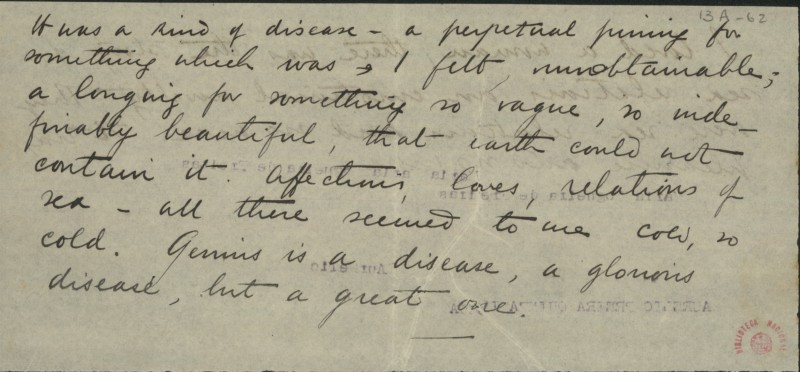 13A-62
It was a kind of disease – a perpetual pining for
something which was, I felt, unobtainable;
a longing for something so vague, so inde-
finably beautiful, that earth could not
contain it. Affections, loves, relations of
sex – all these seemed to me cold, so
cold. Genius is a disease, a glorious
disease, but a great one.
BIBLIOTECA NACIONAL